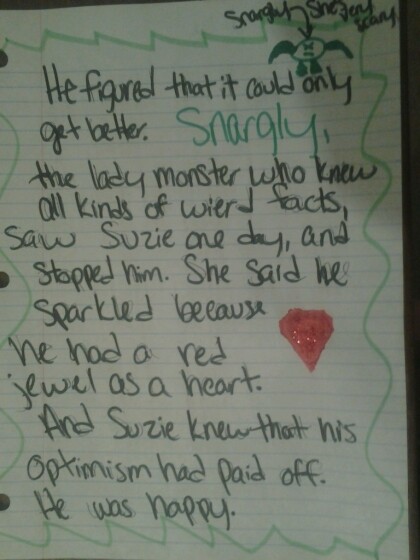 Snargly, she very
scary.
He figured that it could only
get better. Snargly,
the lady monster who knew
all kinds of wierd facts,
saw Suzie one day, and
stopped him. She said he
sparkled because
he had a red
jewel as a heart.
And Suzie knew that his
optimism had paid off.
He was happy.